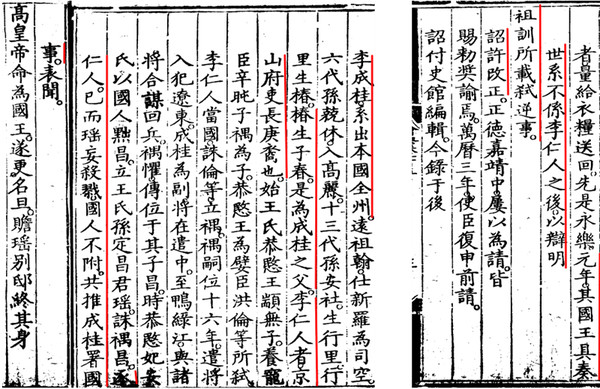 者量給衣糧送回先是永樂元年其國王具奏
世系不係李仁人之後以辯明
祖訓所載弑逆事。
詔許改正。正德嘉靖中屢以為請。皆
賜勑奬諭焉。萬曆三年使臣復申前請。
詔付史館編輯。今錄于後
李成桂系出本國全州。遠祖翰仕新羅為司空
六代孫兢休入高麗。十三代孫安社生行里。行
里生椿。椿生子春。是為成桂之父。李仁人者京
山府吏長庚裔也。始王氏恭愍王顓無子。養寵
臣辛旽子禑為子。恭愍王為嬖臣洪倫等所弑
李仁人當國誅倫等立禑。禑嗣位十六年。遣將
入犯遼東。成桂為副將在遣中。至鴨綠江與諸
將合謀回兵。禑懼傳位于其子昌。時恭愍妃安
氏以國人黜昌。立王氏孫定昌君瑤。誅禑昌。逐
仁人。已而瑤妄殺戮。國人不附。共推成桂署國
事。表聞。
高皇帝命為國王。遂更名旦。贍瑤別邸終其身